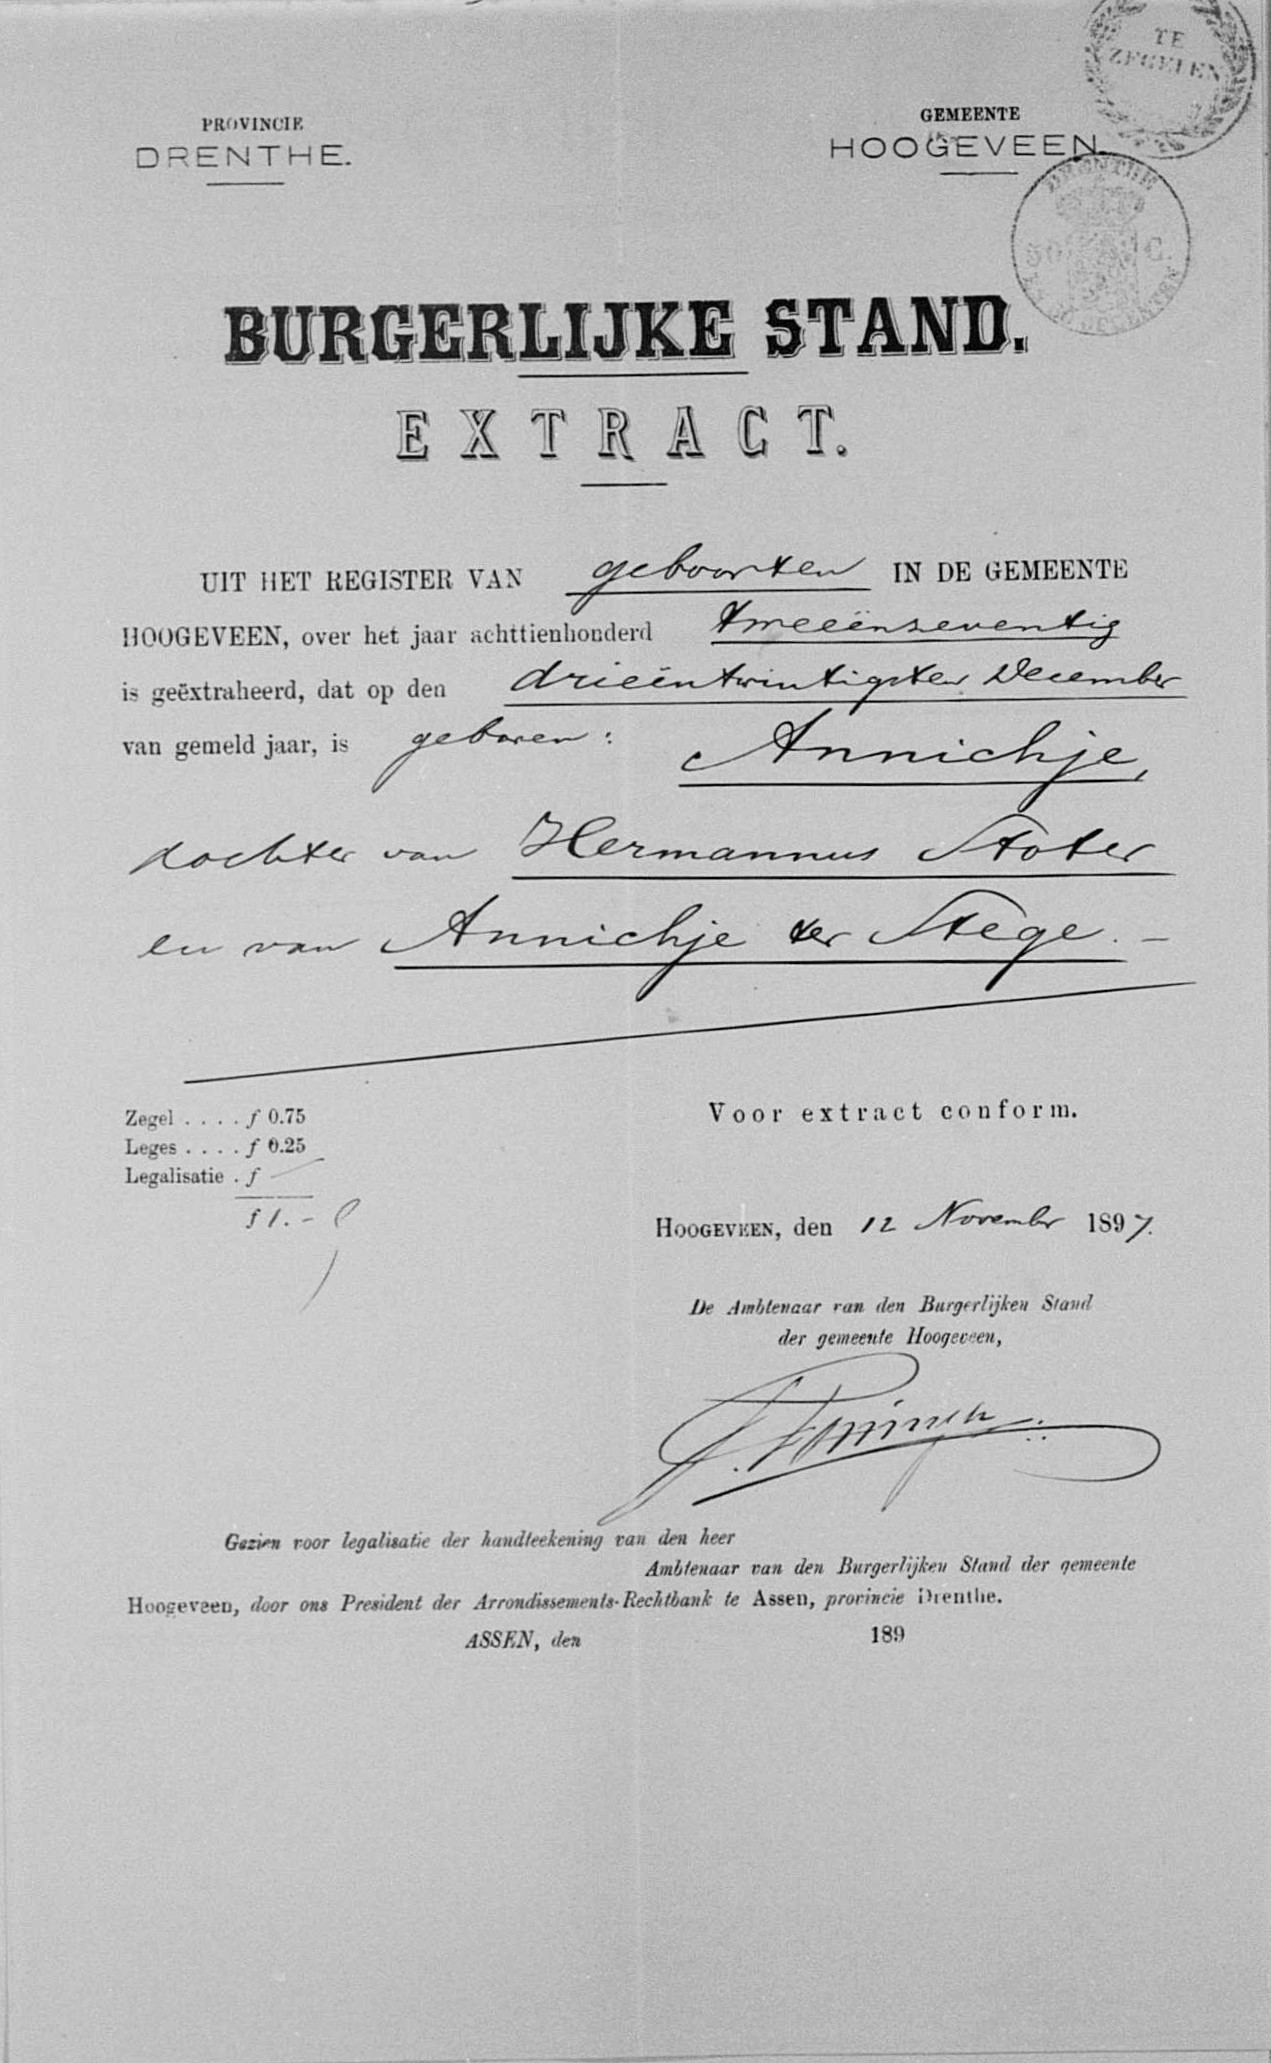 TE
ZEGELEN
PROVINCIE
DRENTHE.
GEMEENTE
HOOGEVEEN.
DRENTHE
50 C.
BURGERLIJKE STAND.
EXTRACT.
UIT HET REGISTER VAN geboorten IN DE GEMEENTE
HOOGEVEEN, over het jaar achttienhonderd tweeënzeventig
is geëxtraheerd, dat op den drieëntwintigsten December
van gemeld jaar, is geboren: Annichje,
dochter van Hermannus Stoter
en van Annichje ter Stege. –
Zegel . . . . f 0.75
Leges . . . . f 0.25
Legalisatie . f —
f 1.-
Voor extract conform.
HOOGEVEEN, den 12 November 1897.
De Ambtenaar van den Burgerlijken Stand
der gemeente Hoogeveen,
Gezien voor legalisatie der handteekening van den heer
Ambtenaar van den Burgerlijken Stand der gemeente
Hoogeveen, door ons President der Arrondissements-Rechtbank te Assen, provincie Drenthe.
ASSEN, den 189